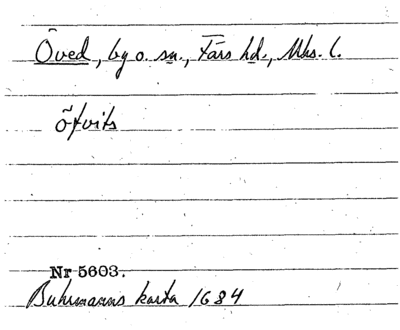 Öved, by o. sn., Färs hd., Mhs. l.
õfvits
Nr 5603.
Buhrmanns karta 1684